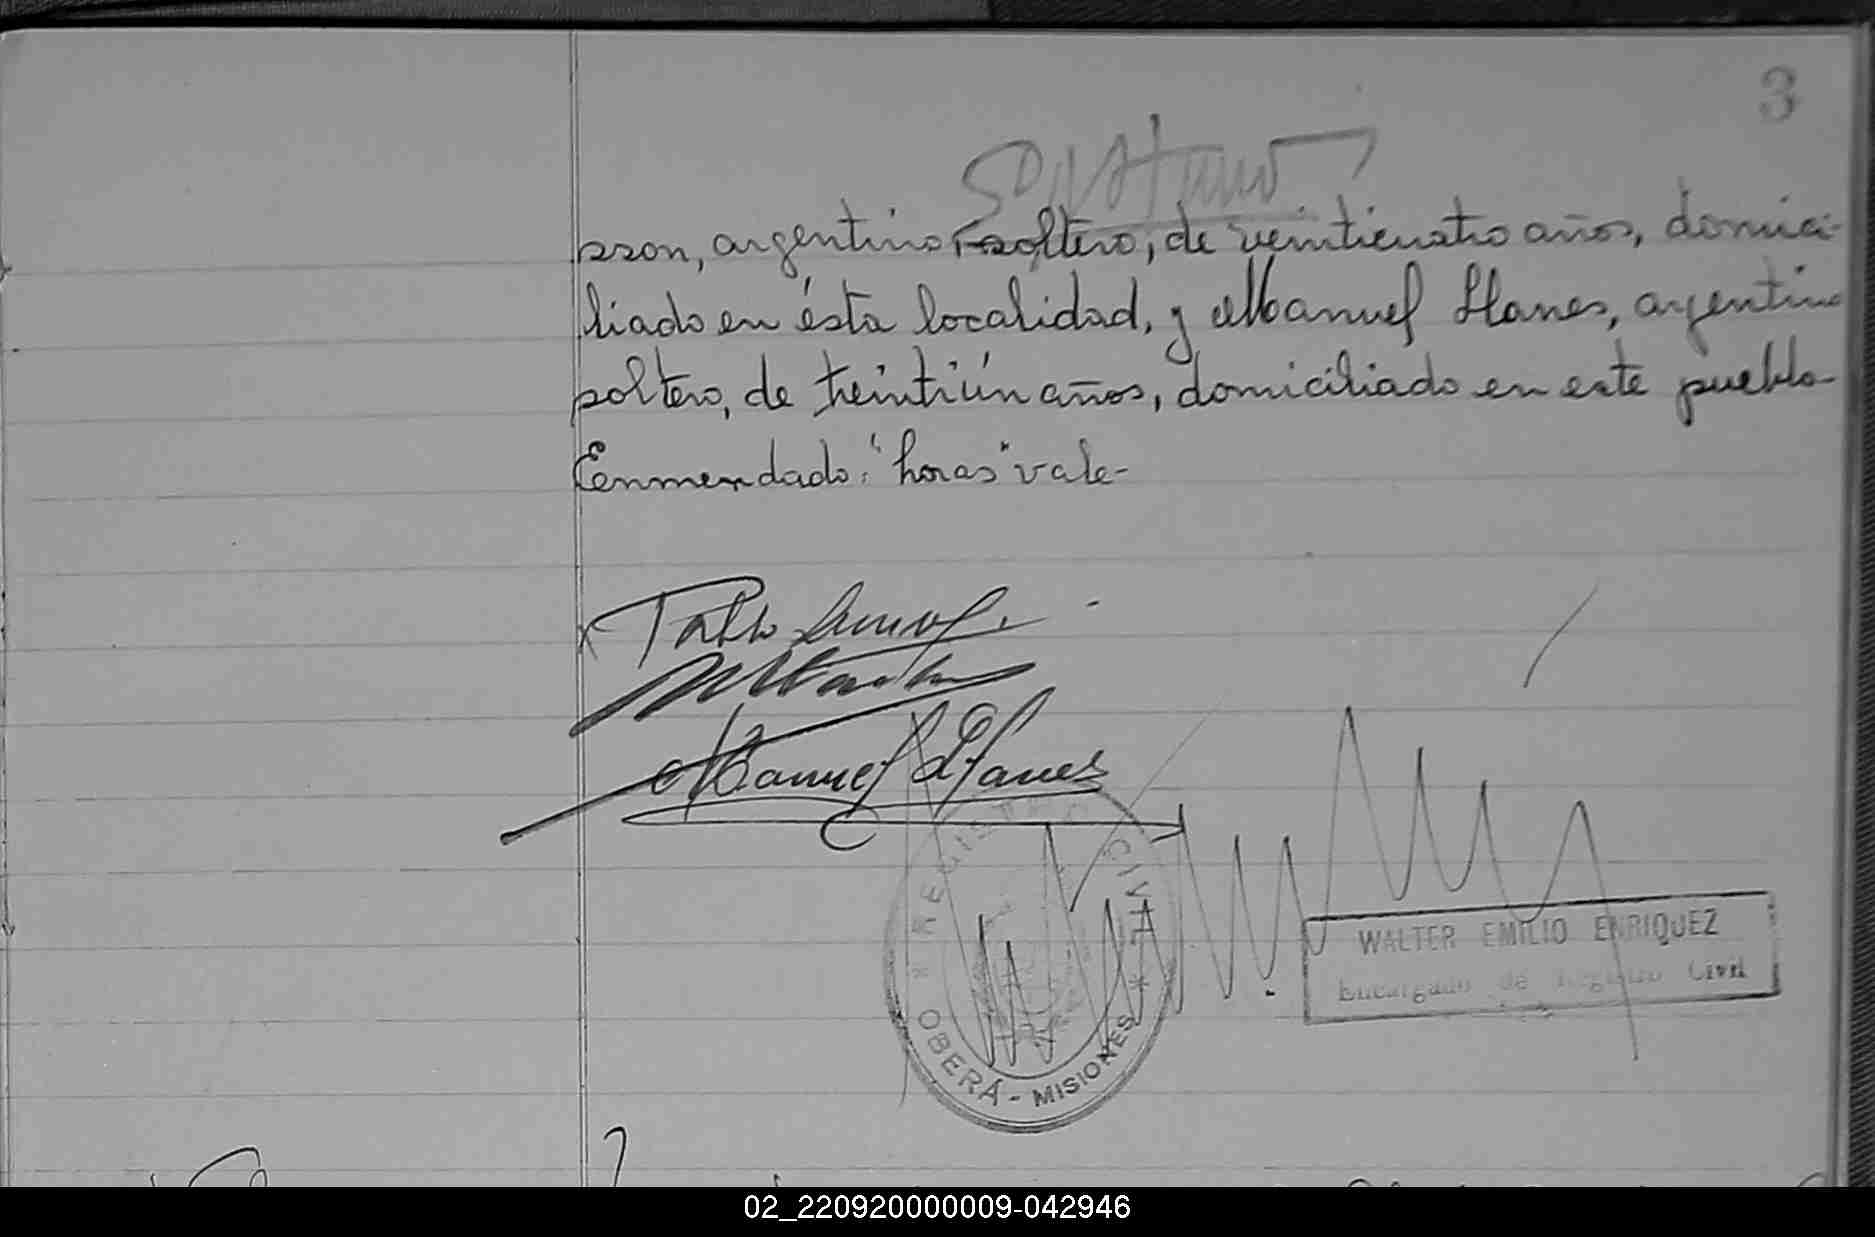 3
sson, argentino, soltero, de veinticuatro años, domici-
liado en ésta localidad, y Manuel Llanes, argentino
soltero, de treintiún años, domiciliado en este pueblo-
Enmendado: "horas" vale-
Pablo
Manuel Llanes
* REGISTRO CIVIL *
OBERÁ - MISIONES
WALTER EMILIO ENRIQUEZ
Encargado de Registro Civil
02_220920000009-042946